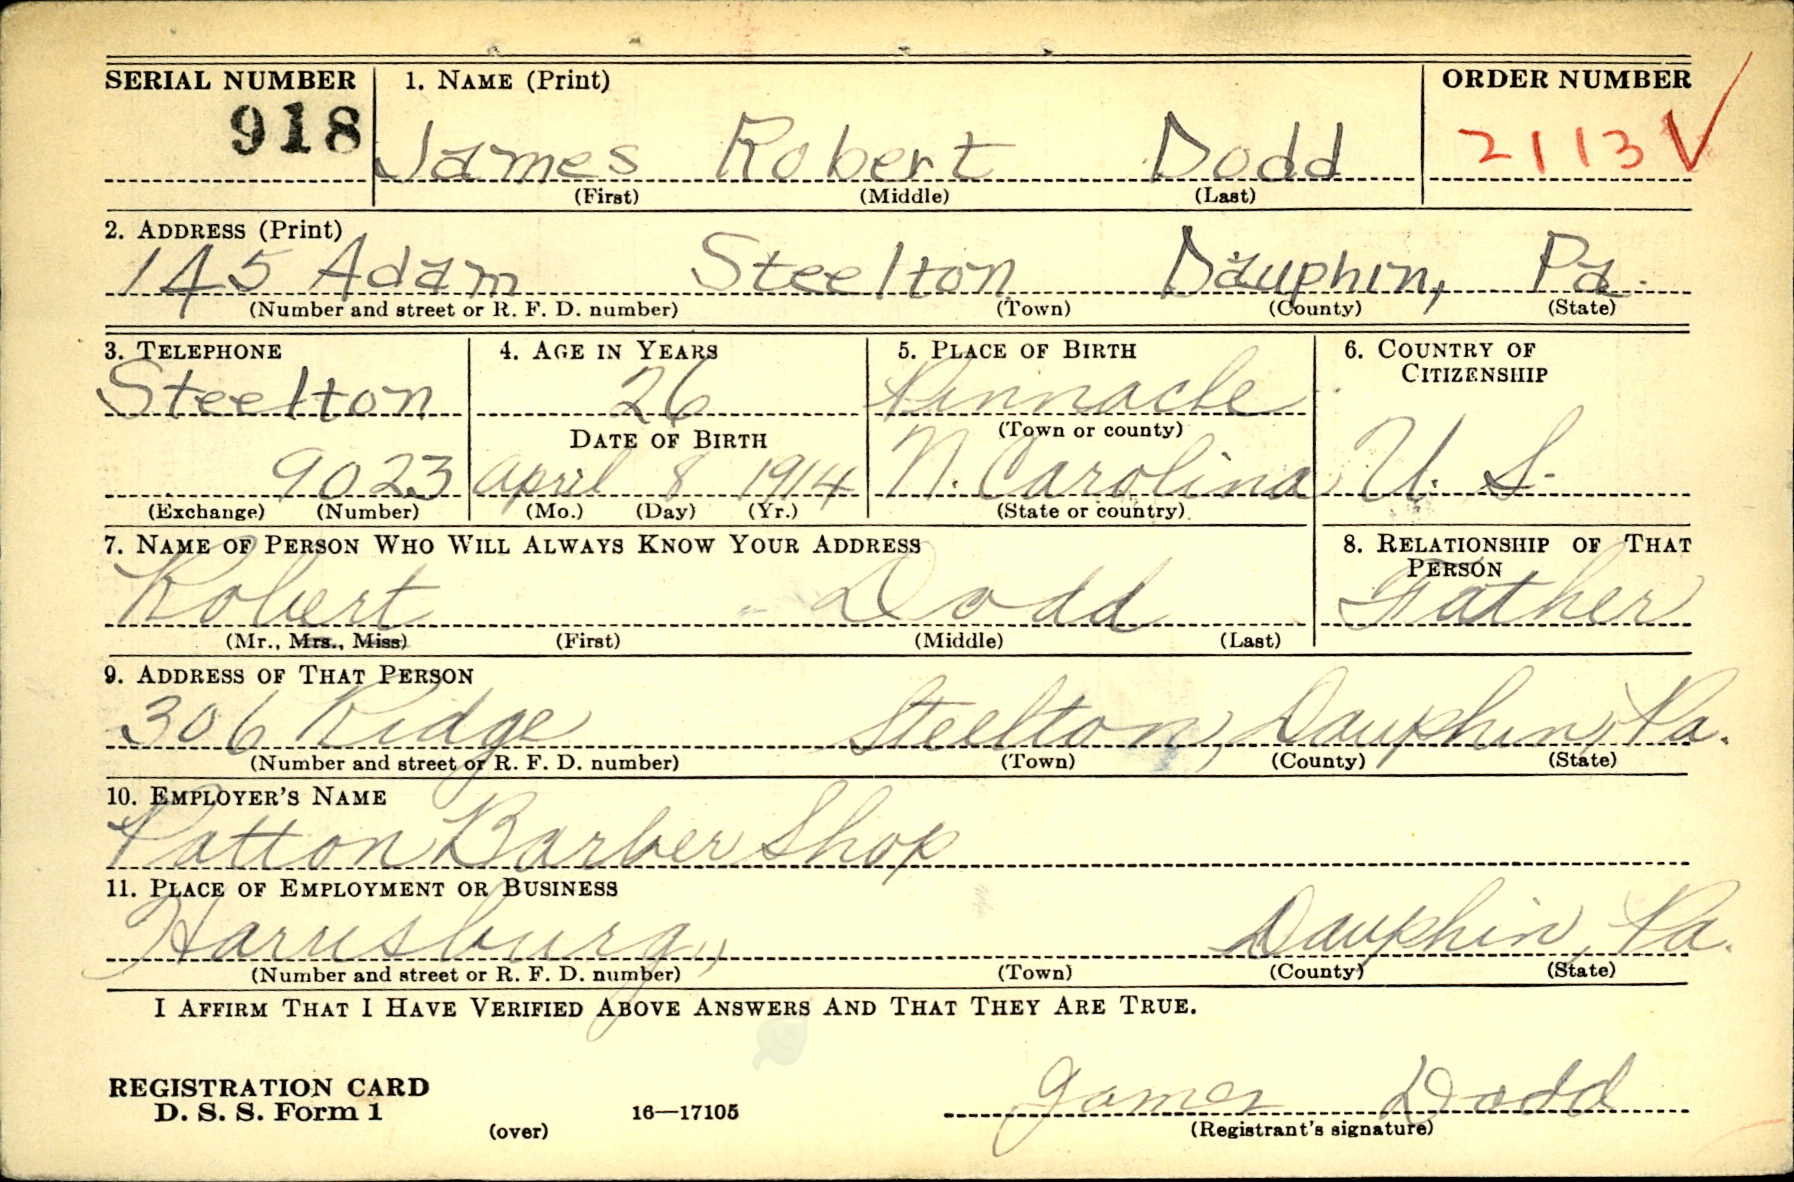 SERIAL NUMBER 1. NAME (Print) ORDER NUMBER
918 James Robert Dodd 2113 V
(First) (Middle) (Last)
2. ADDRESS (Print)
145 Adam Steelton Dauphin, Pa.
(Number and street or R. F. D. number) (Town) (County) (State)
3. TELEPHONE 4. AGE IN YEARS 5. PLACE OF BIRTH 6. COUNTRY OF CITIZENSHIP
Steelton 26 Pinnacle
DATE OF BIRTH (Town or county)
9023 April 8 1914 N. Carolina U. S.
(Exchange) (Number) (Mo.) (Day) (Yr.) (State or country)
7. NAME OF PERSON WHO WILL ALWAYS KNOW YOUR ADDRESS 8. RELATIONSHIP OF THAT PERSON
Robert Dodd Father
(Mr., Mrs., Miss) (First) (Middle) (Last)
9. ADDRESS OF THAT PERSON
306 Ridge Steelton, Dauphin, Pa.
(Number and street or R. F. D. number) (Town) (County) (State)
10. EMPLOYER'S NAME
Patton Barber Shop
11. PLACE OF EMPLOYMENT OR BUSINESS
Harrisburg, Dauphin, Pa.
(Number and street or R. F. D. number) (Town) (County) (State)
I AFFIRM THAT I HAVE VERIFIED ABOVE ANSWERS AND THAT THEY ARE TRUE.
REGISTRATION CARD
D. S. S. Form 1 16—17105 James Dodd
(over) (Registrant's signature)